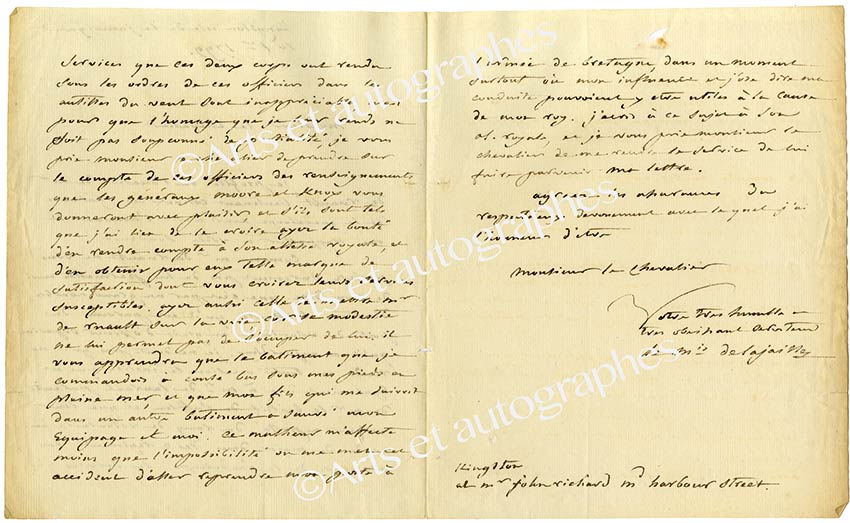 Services que ces deux corps ont rendu
sous les ordres de ces officiers dans les
antilles du vent sont inappreciables mais
pour que l'homage que je leur rends ne
soit pas soupconné de partialité, je vous
prie monsieur le chevalier de prendre sur
le compte de ces officiers des renseignements
que les généraux moore et Knox vous
donneront avec plaisir, et s'ils sont tels
que j'ai lieu de le croire ayez la bonté
d'en rendre compte à Son altesse royale, et
d'en obtenir pour eux telle marque de
satisfaction dont vous croirez leurs services
susceptibles. ayez aussi celle de mettre mr
de rnault sur la voie car sa modestie
ne lui permet pas de s'occuper de lui. il
vous apprendra que le batiment que je
commandois à coulé bas sous mes pieds en
pleine mer et que mon fils qui me suivoit
dans un autre batiment a sauvé mon
Equipage et moi. Ce malheur m'affecte
moins que l'impossibilité ou me met cet
accident d'aller reprendre mon poste à
l'armée de bretagne, dans un moment
surtout où mon influence et j'ose dire ma
conduite pouvoient y etre utiles à la cause
de mon roy. j'ecris à ce sujet à Son
al. royale, et je vous prie monsieur le
chevalier de me rendre le service de lui
faire parvenir ma lettre.
agreez les assurances du
respectueux devouement avec le quel j'ai
l'honneur d'etre
Monsieur le Chevalier
Votre tres humble et
tres obeissant serviteur
le mis de lajaille
Kingston
at mr john richard md harbour street.
©Arts et autographes
©Arts et autographes
©Arts et autographes
©Arts et autographes